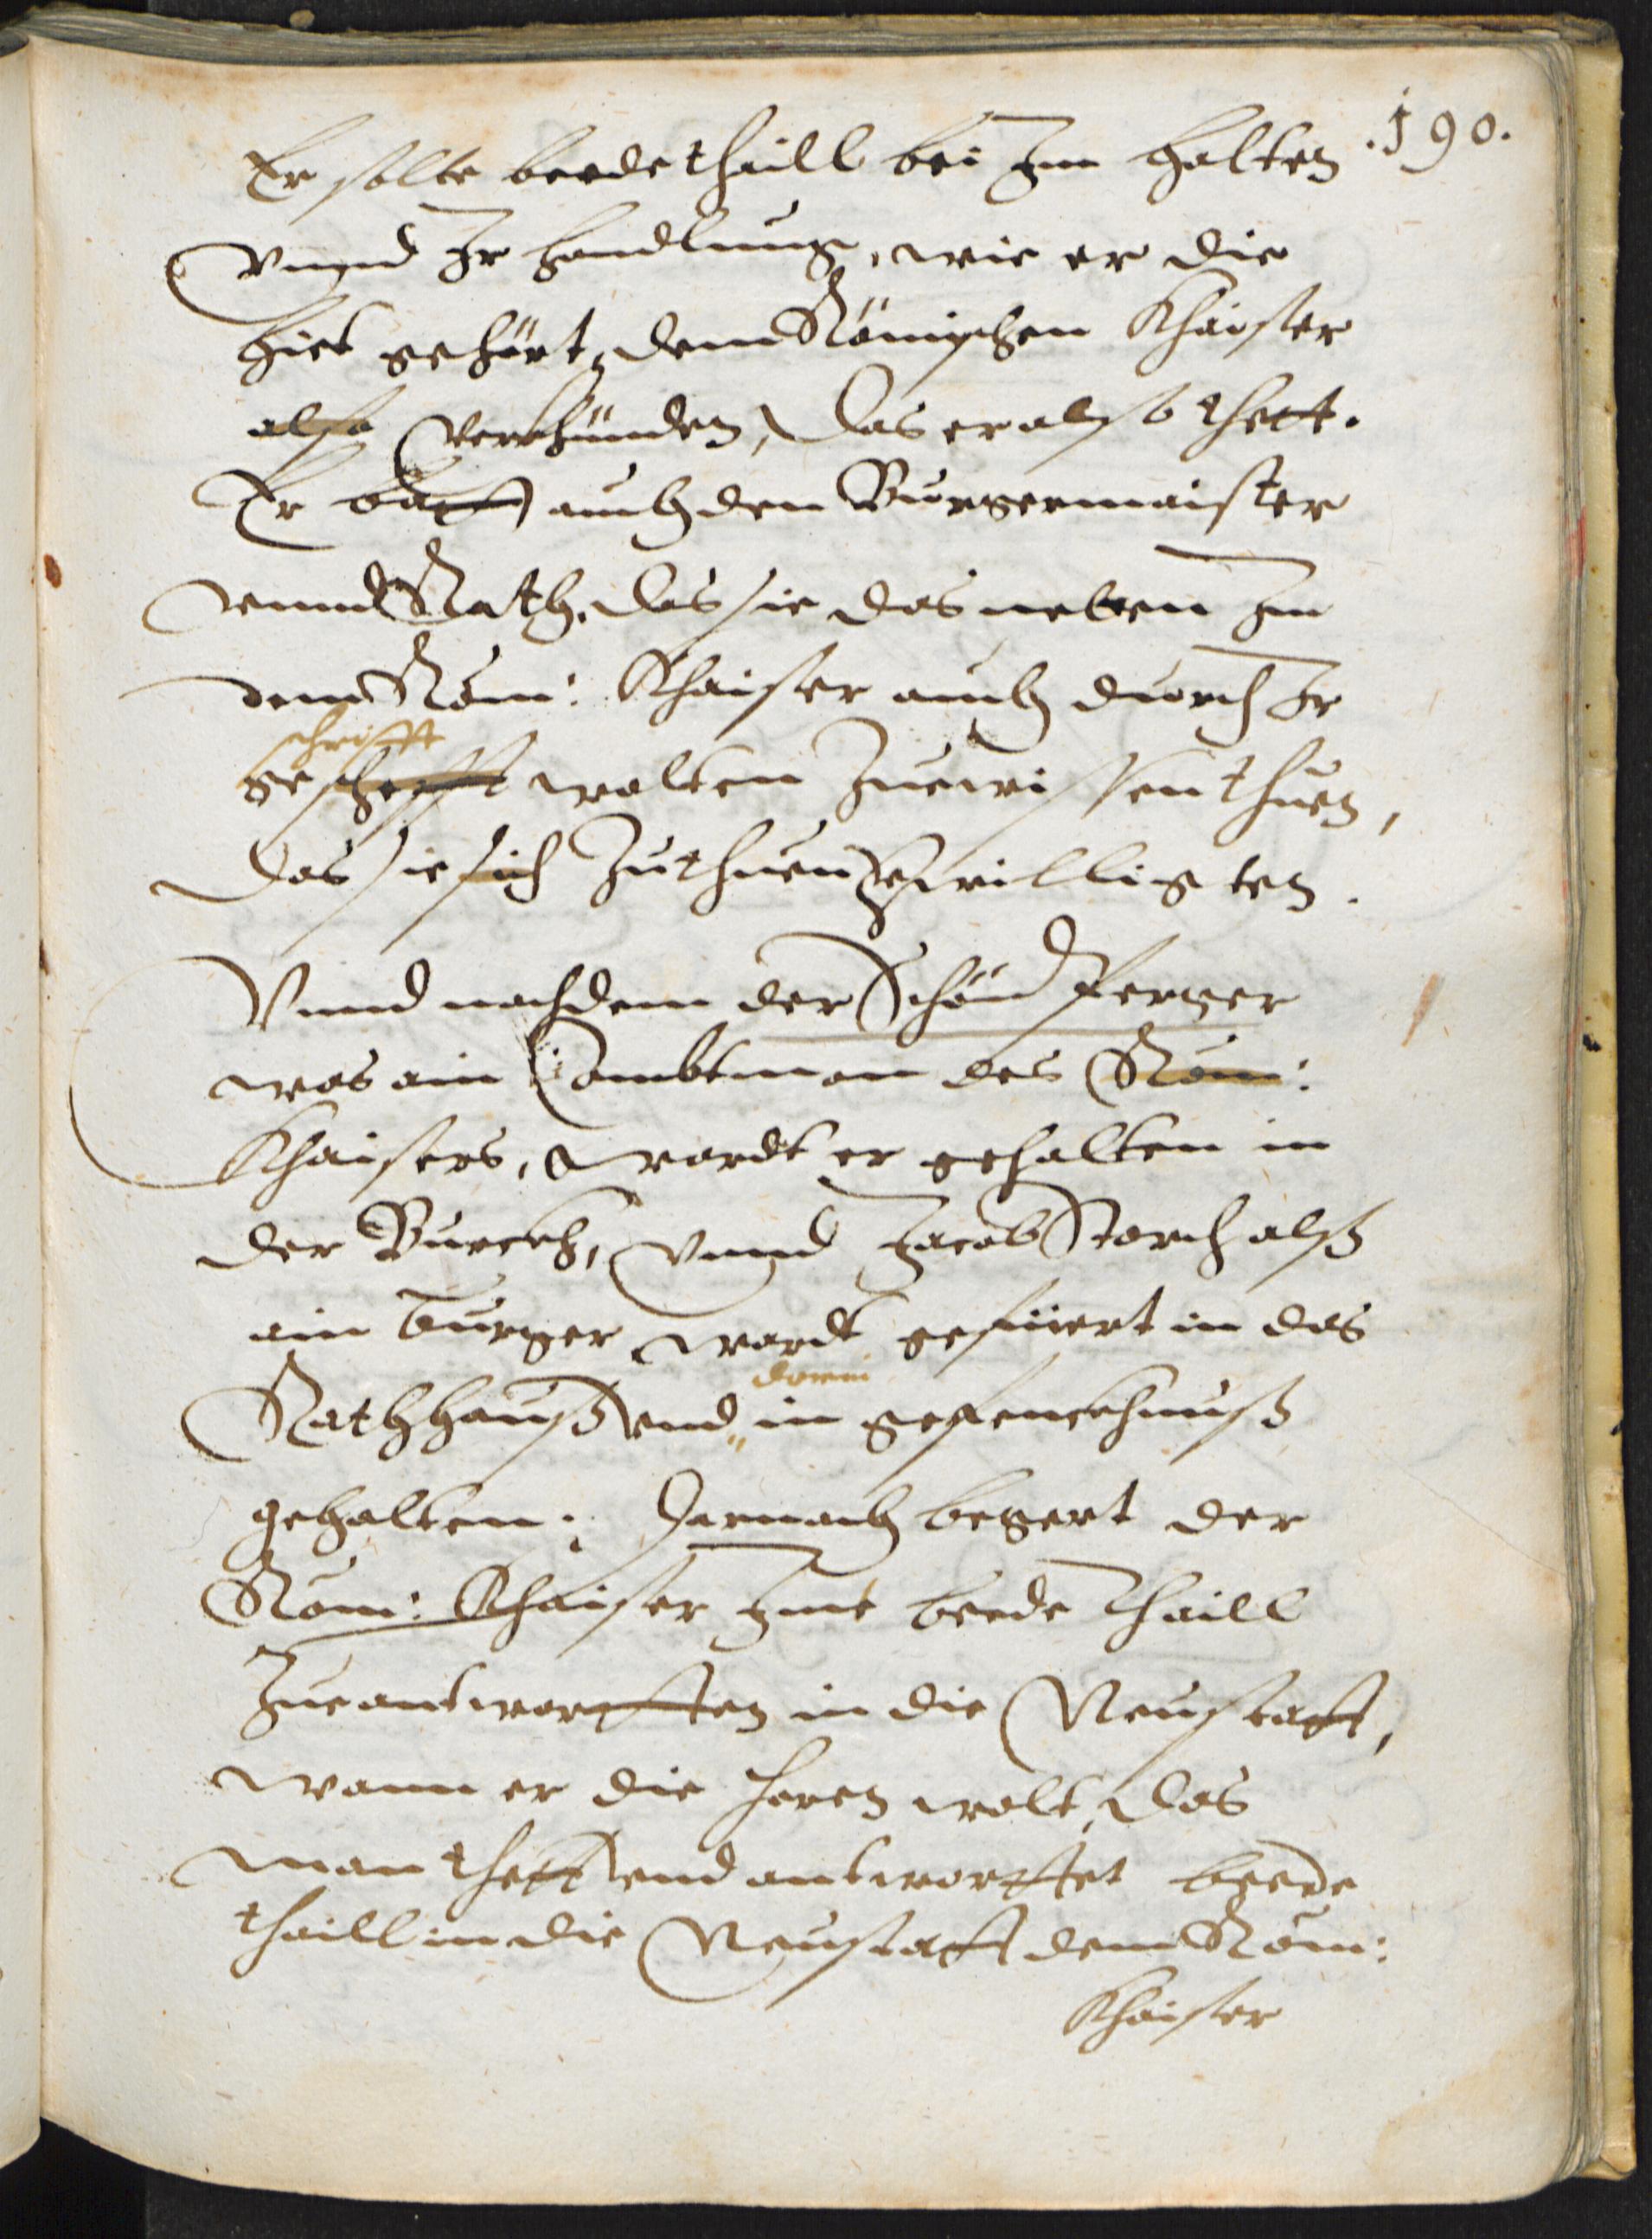 .190.
Er solte beede thaill bei Im halten
vnnd Ir handlung, wie er die
hiet gehört, dem Römischen Khaiser
also verkünden, Das er also thett.
Er batt auch den Burgermaister
vnnd Rath, das sie das neben Im
dem Röm: Khaiser auch durch Ir
schrifft
geschefft wolten Zuewissen thuen,
Das sie sich Zuthuen bewilligten.
Vnnd nachdem der Schöndferger
was ein Ambtman des Röm:
Khaisers, wardt er gehalten in
der Burckh, vnnd Jacob Storch alß
ein burger wardt gefüert in das
darein
Rathhauß vnd in gefenckhnuß
gehalten. Darnach begert der
Röm: Khaiser Ime beede thaill
Zueantwortten in die Neustatt,
wann er die heren wolt, Das
man thett vnd antworttet beede
thaill in die Neustatt dem Röm:
Khaiser